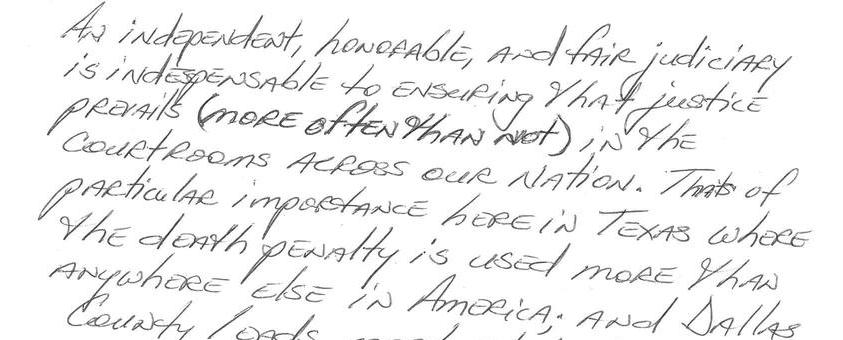 An independent, honorable, and fair judiciary
is indespensable to ensuring that justice
prevails (more often than not) in the
courtrooms across our nation. Thats of
particular importance here in Texas where
the death penalty is used more than
anywhere else in America; and Dallas
County leads